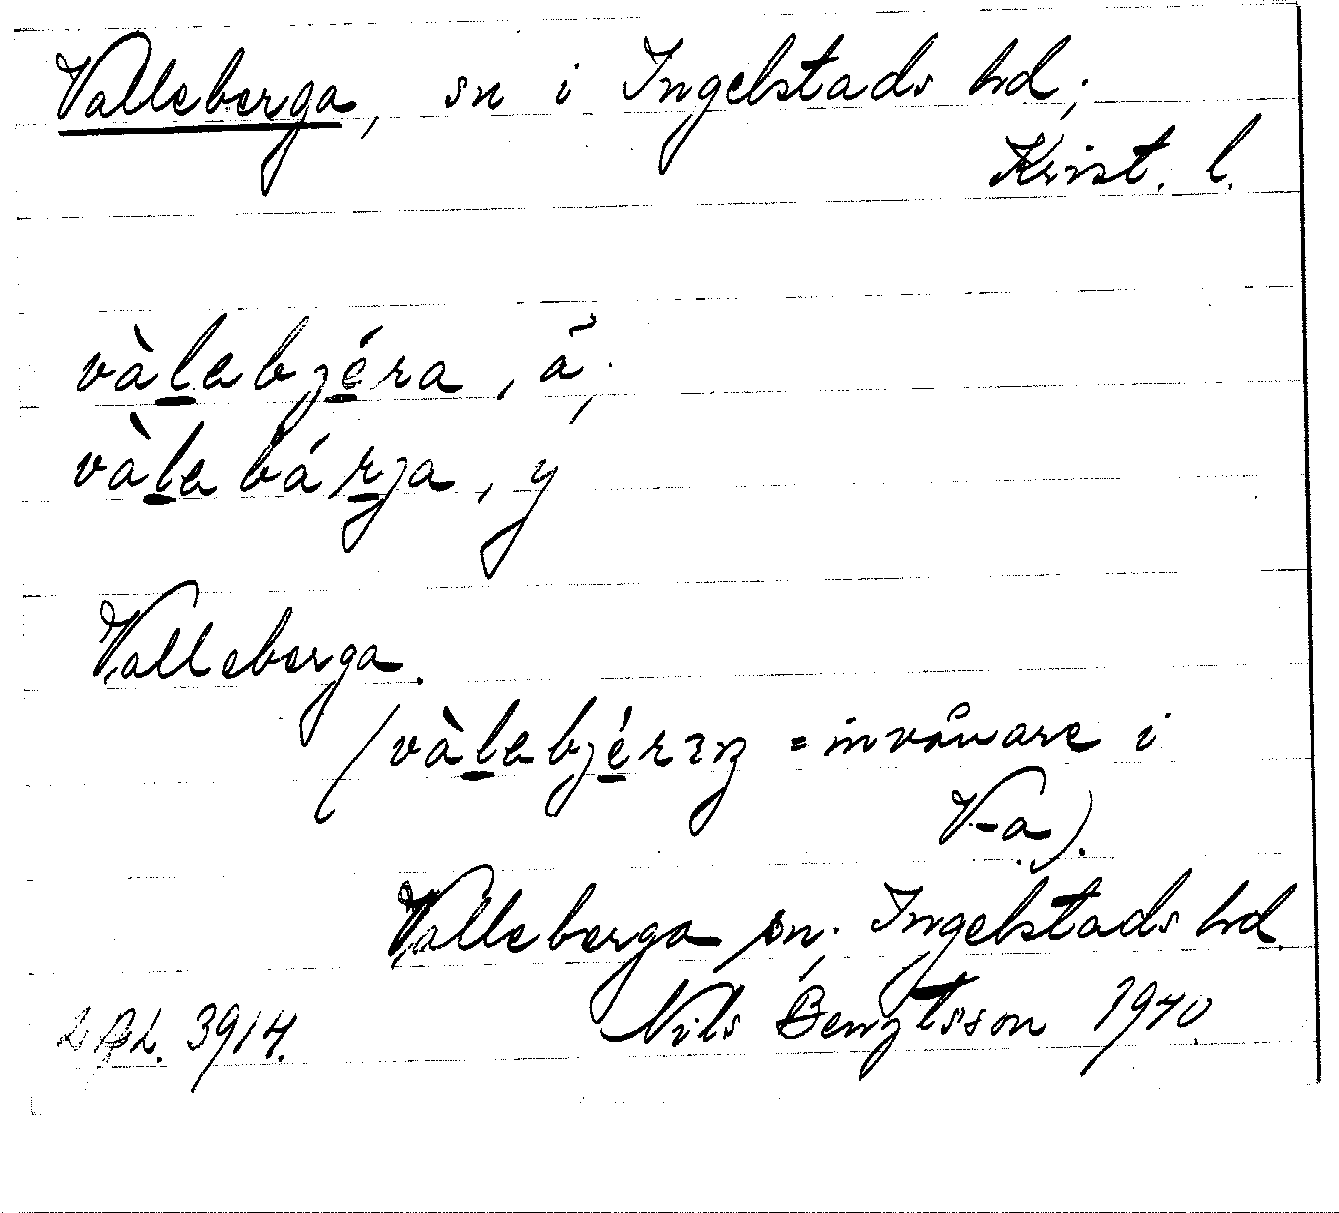 Valleberga, sn i Ingelstads hd;
Krist. l.
vàlebjéra, ä;
vàlebárja, y
Valleberga.
(vàlebjérıŋ = invånare i
V-a).
Valleberga sn; Ingelstads hd
Nils Bengtsson 1940
3914.